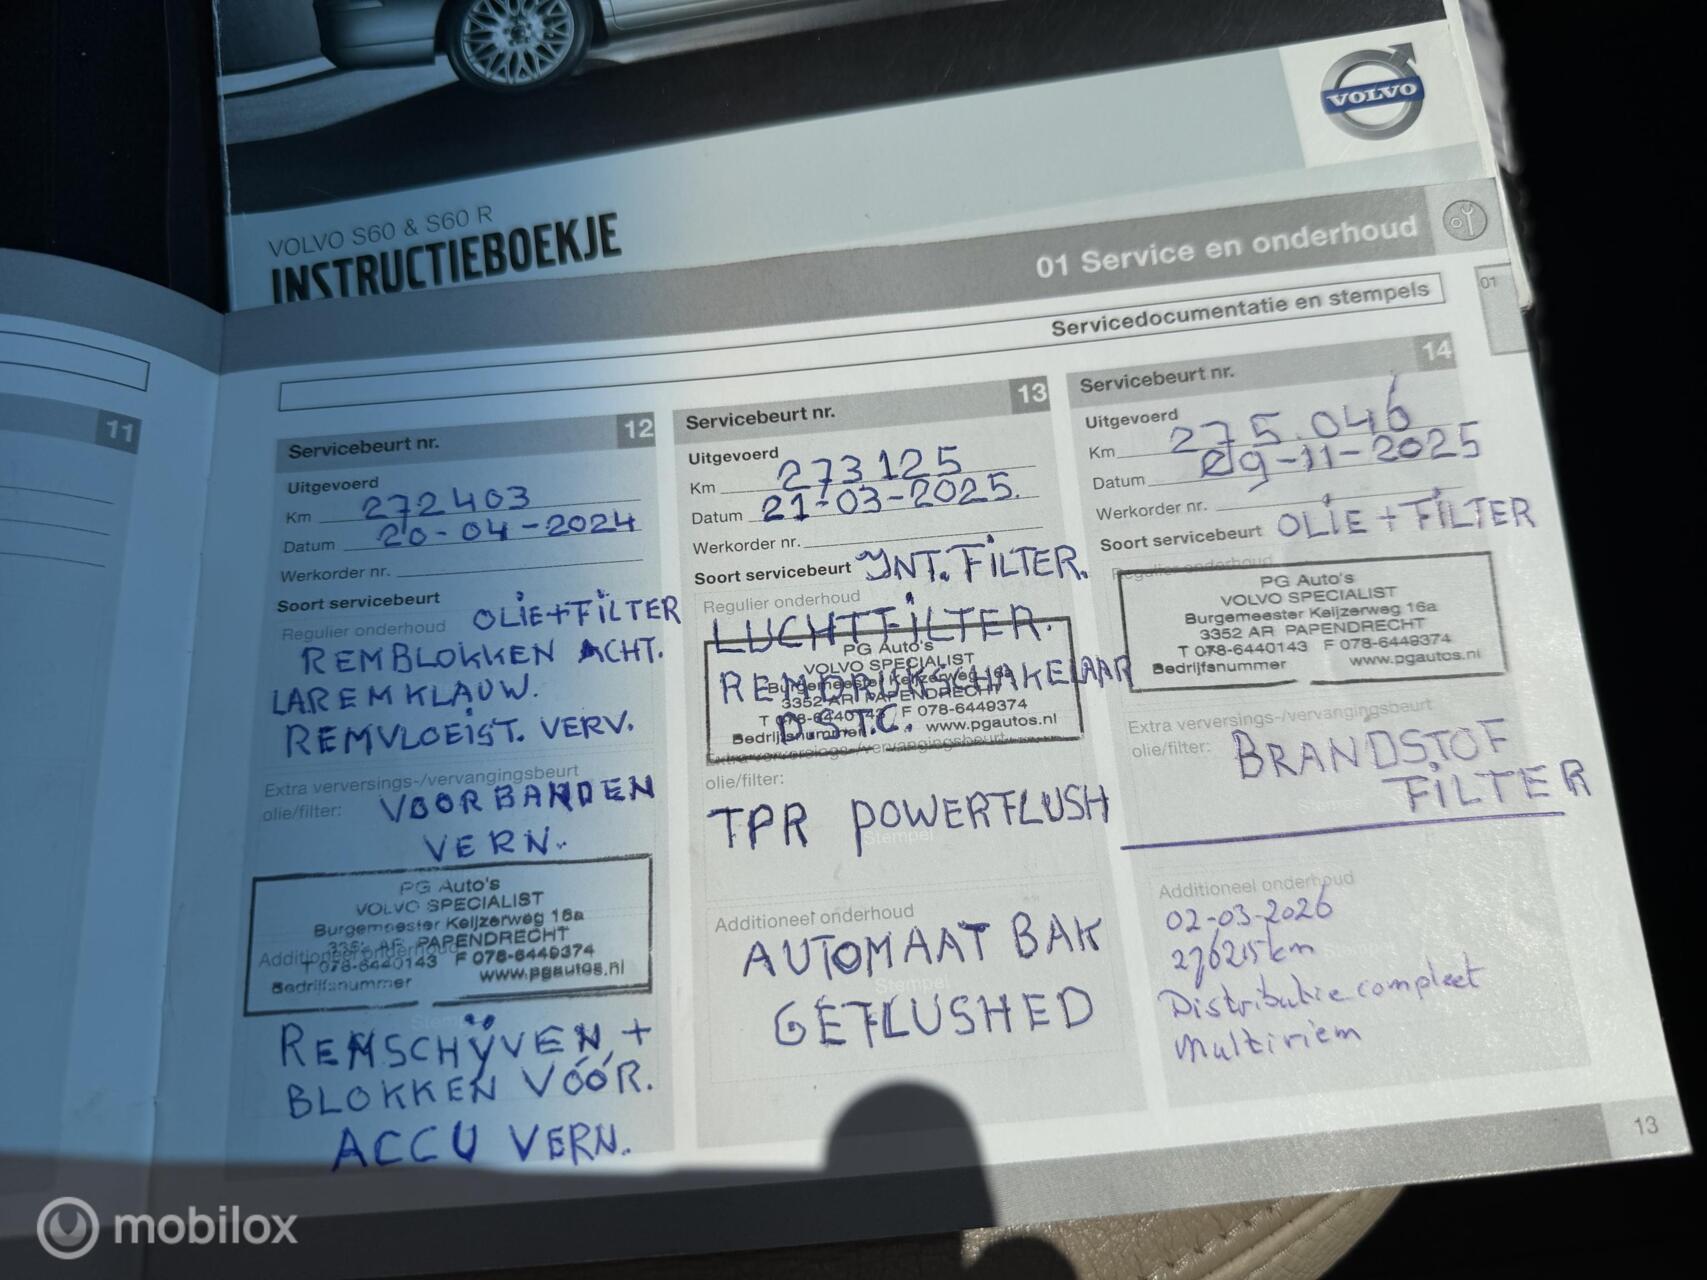 VOLVO
VOLVO S60 & S60 R
INSTRUCTIEBOEKJE
01 Service en onderhoud
01
Servicedocumentatie en stempels
11
Servicebeurt nr. 12
Uitgevoerd
Km 272403
Datum 20-04-2024
Werkorder nr.
Soort servicebeurt
Regulier onderhoud OLIE+FILTER
REMBLOKKEN ACHT.
LAREMKLAUW.
REMVLOEIST. VERV.
Extra verversings-/vervangingsbeurt
olie/filter: VOORBANDEN
VERN.
PG Auto's
VOLVO SPECIALIST
Burgemeester Keijzerweg 16a
3352 AR PAPENDRECHT
Additioneel onderhoud
T 078-6440143 F 078-6449374
Bedrijfsnummer www.pgautos.nl
Stempel
REMSCHIJVEN +
BLOKKEN VÓÓR.
ACCU VERN.
Servicebeurt nr. 13
Uitgevoerd
Km 273125
Datum 21-03-2025.
Werkorder nr.
Soort servicebeurt INT. FILTER.
Regulier onderhoud
LUCHTFILTER.
PG Auto's
VOLVO SPECIALIST
REMDRUKSCHAKELAAR
Burgemeester Keijzerweg 16a
3352 AR PAPENDRECHT
D.S.T.C.
T 078-6440143 F 078-6449374
Bedrijfsnummer www.pgautos.nl
Extra verversings-/vervangingsbeurt
olie/filter:
TPR POWERFLUSH
Stempel
Additioneel onderhoud
AUTOMAAT BAK
Stempel
GEFLUSHED
Servicebeurt nr. 14
Uitgevoerd
Km 275.046
Datum 29-11-2025
Werkorder nr.
Soort servicebeurt OLIE + FILTER
Regulier onderhoud
PG Auto's
VOLVO SPECIALIST
Burgemeester Keijzerweg 16a
3352 AR PAPENDRECHT
T 078-6440143 F 078-6449374
Bedrijfsnummer www.pgautos.nl
Extra verversings-/vervangingsbeurt
olie/filter: BRANDSTOF
FILTER
Stempel
Additioneel onderhoud
02-03-2026
276215km
Stempel
Distributie compleet
Multiriem
13
mobilox